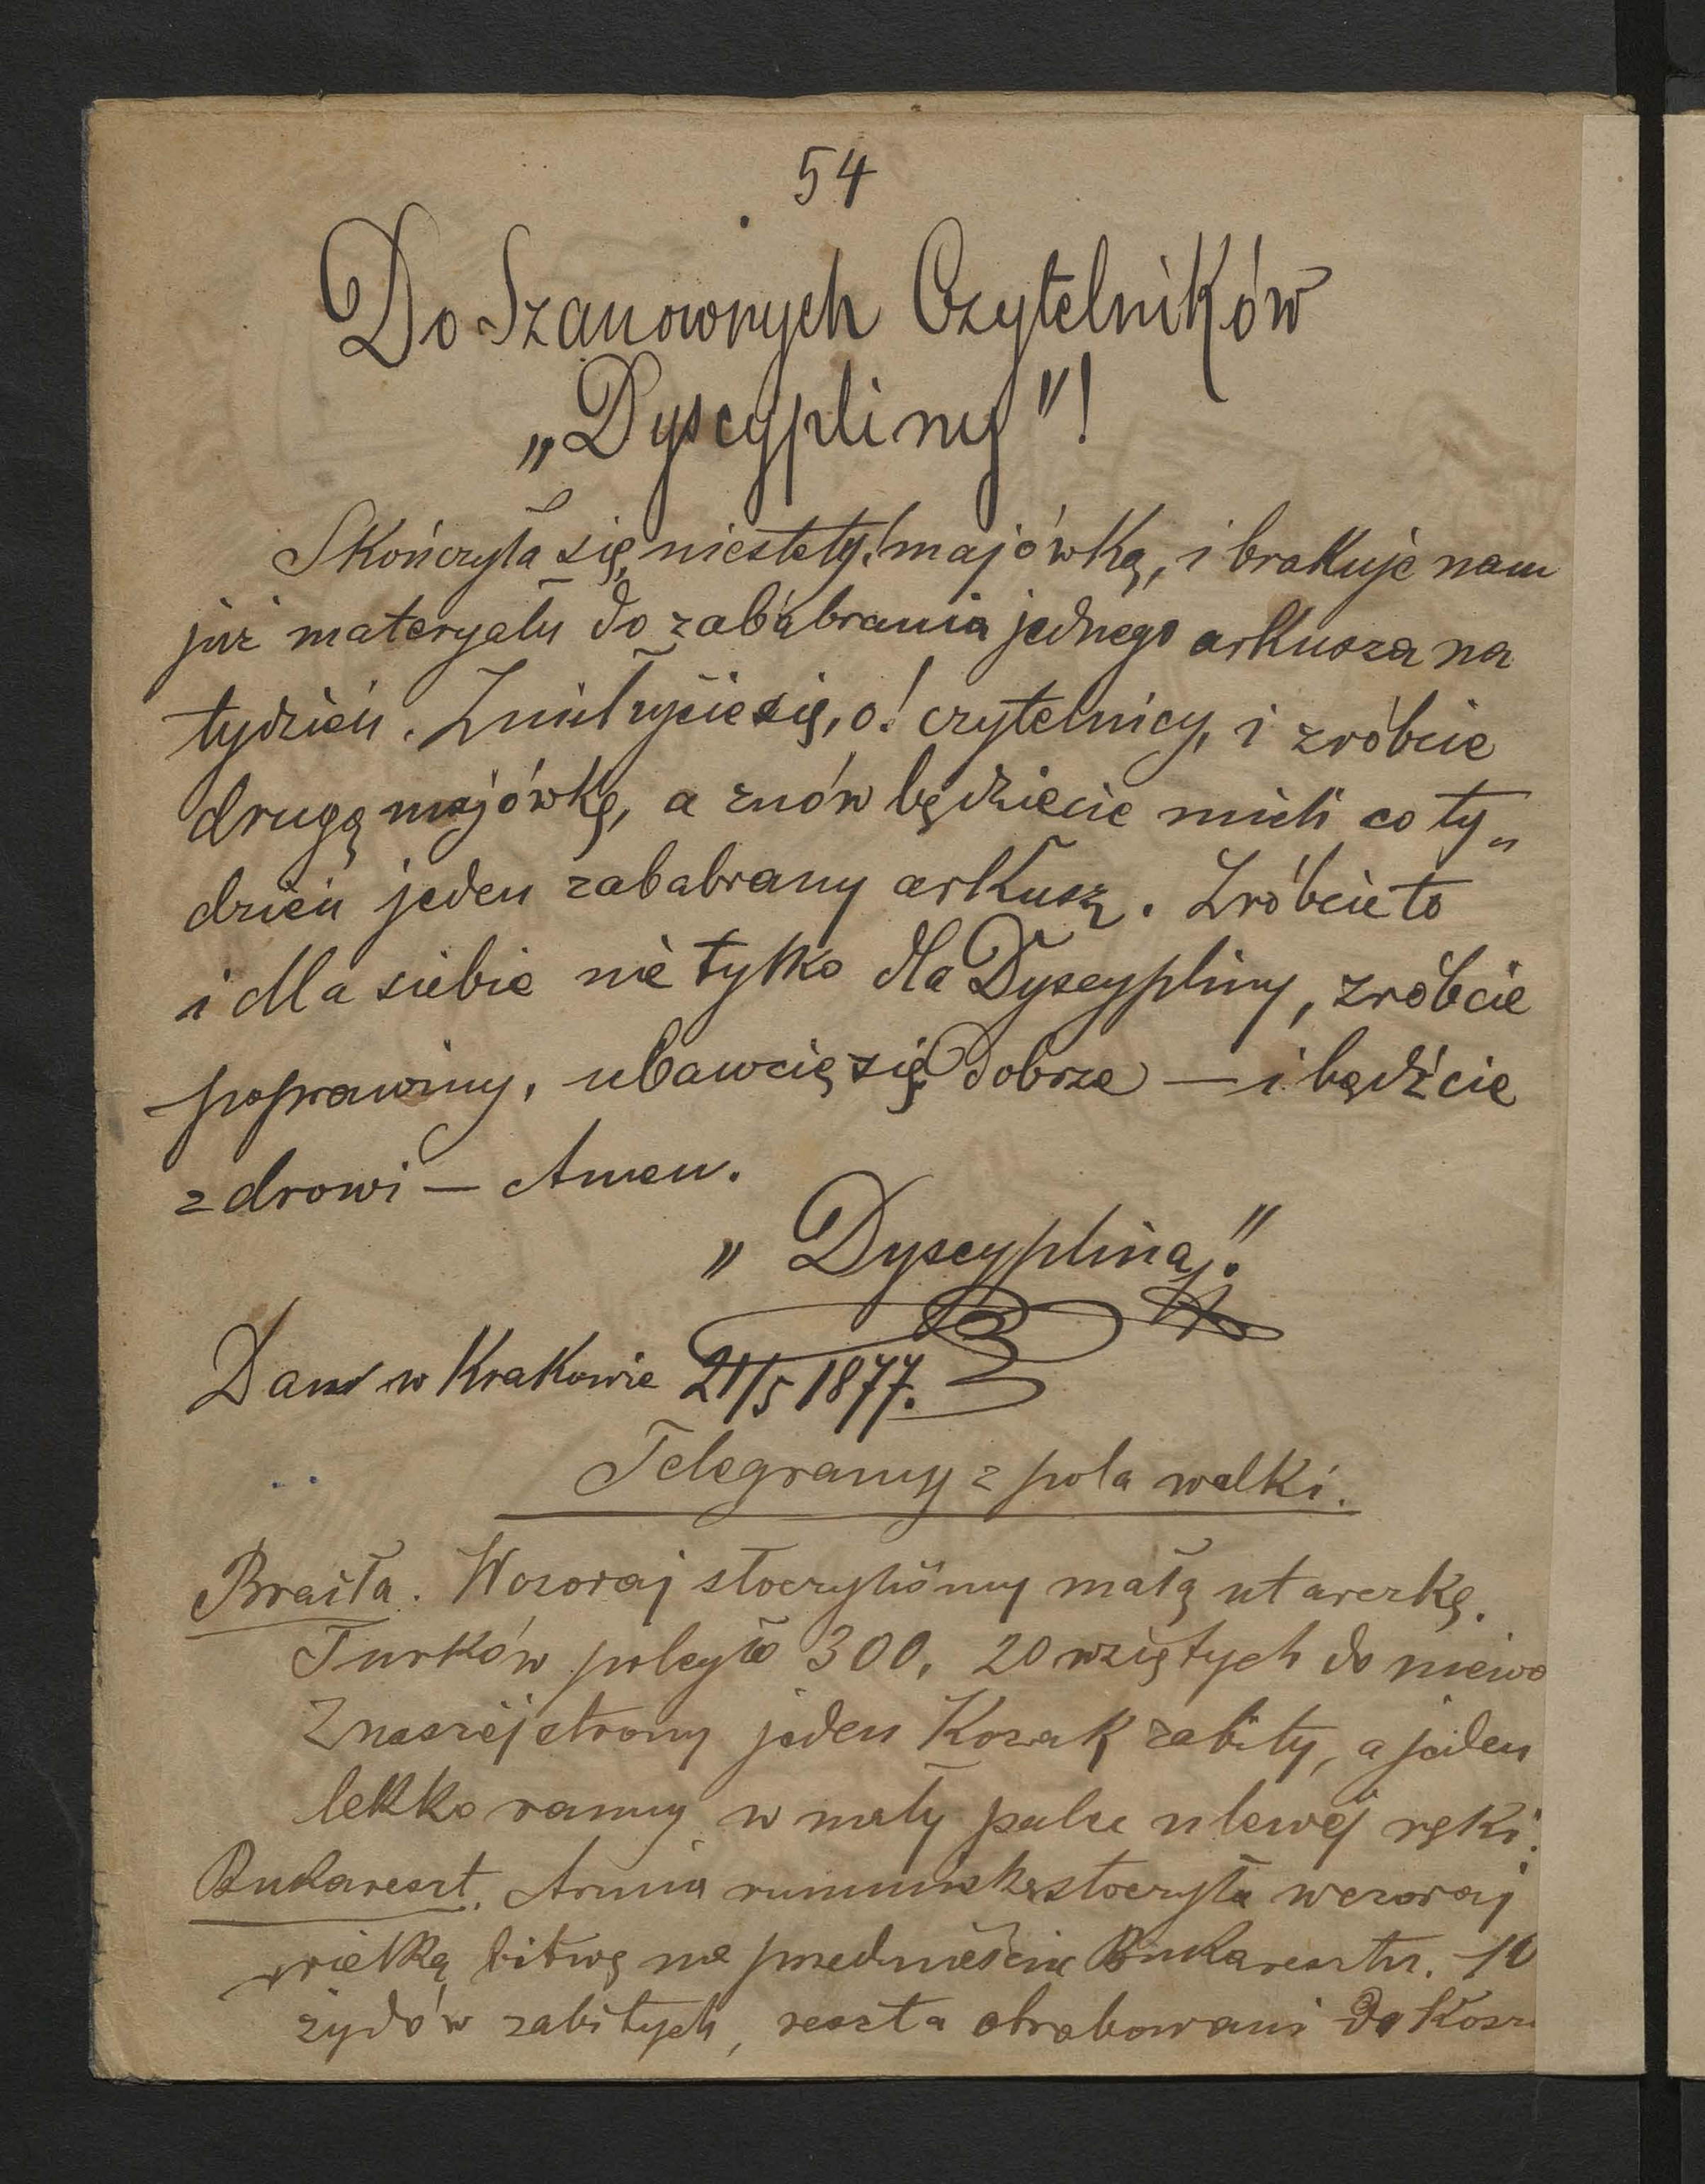 54
Do Szanownych Czytelników
„Dyscypliny"!
Skończyła się, niestety! majówka, i brakuje nam
już materyału do zababrania jednego arkusza na
tydzień. Zmiłujcie się, o! czytelnicy, i zróbcie
drugą majówkę, a znów będziecie mieli co ty„
dzień jeden zababrany arkusz. Zróbcie to
i dla siebie nie tylko dla Dyscypliny, zróbcie
poprawiny, ubawcie się dobrze — i bądźcie
zdrowi — Amen.
„Dyscyplina."
Dan w Krakowie 21/5 1877.
Telegramy z pola walki.
Braiła. Wczoraj stoczyliśmy małą utarczkę.
Turków poległo 300, 20 wziętych do niewo
Z naszéj strony jeden Kozak zabity, a jeden
lekko ranny w mały palec u lewéj ręki.
Bukareszt. Armia rumuńska stoczyła wczoraj
wielką bitwę na przedmieściu Bukaresztu. 10
żydów zabitych, reszta obrabowani do Kosz